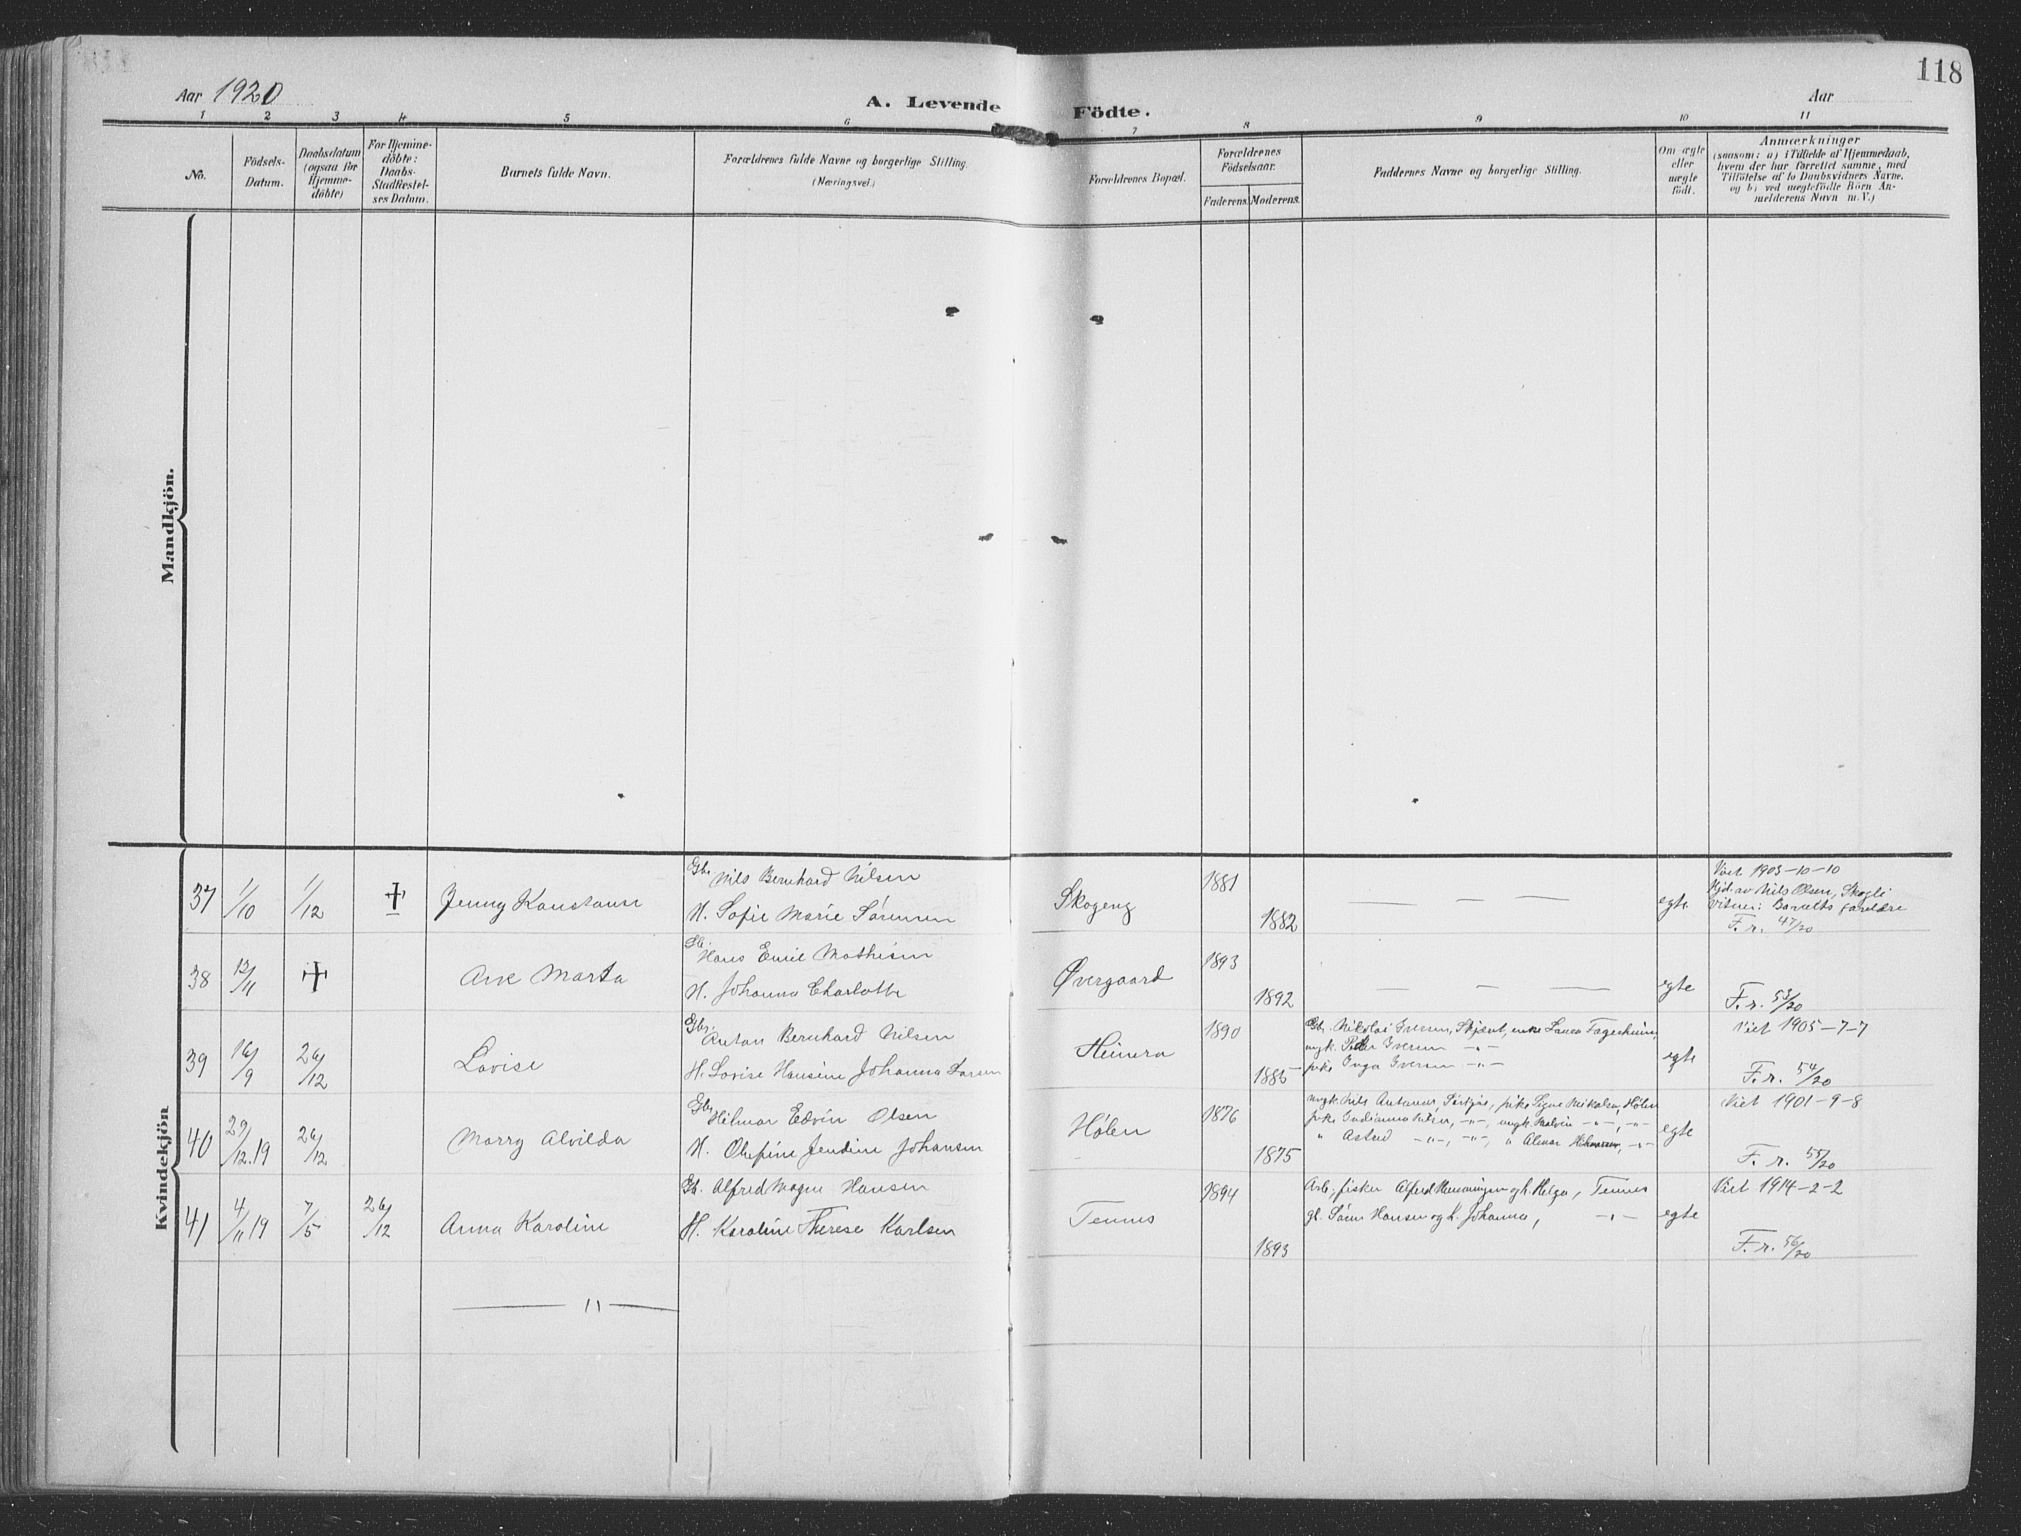 118
Aar 1920
A. Levende Födte.
Aar
1 2 3 4 5 6 7 8 9 10 11
No.
Födsels-
Datum.
Daabsdatum
(ogsaa for
Hjemme-
döbte)
For Hjemme-
döbte:
Daabs-
Stadfæstel-
ses Datum.
Barnets fulde Navn.
Forældrenes fulde Navne og borgerlige Stilling.
(Næringsvei.)
Forældrenes Bopæl.
Forældrenes
Födselsaar.
Faderens. Moderens.
Faddernes Navne og borgerlige Stilling.
Om ægte
eller
uægte
födt.
Anmærkninger
(saasom: a) i Tilfælde af Hjemmedaab,
hvem der har forrettet samme, med
Tilföielse af to Daabsvidners Navne.
og b) ved uægtefödte Börn An-
melderens Navn m. V.)
Mandkjön.
Kvindekjön
37 1/10 1/12 †
Jenny Konstanse
Gbr. Nils Bernhard Nilsen
H. Sofie Marie Sörensen
Skogeng
1881
1882
— — —
egte
Viet 1903-10-10
Hjd. av Nils Olsen, Skogli
Vitner: Barnets foreldre
F. r. 47/20
38 12/11 †
Ane Marta
Hans Emil Mathisen
H. Johanna Charlotte
Øvergaard
1893
1892
— — —
egte
F. r. 53/20
39 16/9 26/12
Lovise
Gbr. Anton Bernhard Nilsen
H. Lovise Hansine Johanna Larsen
Heimro
1890
1885
Gbr. Nikolai Iversen, Skjævt, enke Laura Fagerheim,
ungk. Peder Iversen -"-
pike Inga Iversen -"-
egte
Viet 1905-7-7
F. r. 54/20
40 29/12.19 26/12
Marry Alvilda
Gbr. Hilmar Edvin Olsen
H. Olufine Jendine Johansen
Hølen
1876
1875
ungk. Nils Antonus, pike Signe Nikolsen, Hølen
pike ungk.
" Astrid -"-, -"-, "
egte
Viet 1901-9-8
F. r. 55/20
41 4/11 19 7/5 26/12
Anna Karoline
Gb. Alfred Magne Hansen
H. Karoline Therese Karlsen
Tennes
1894
1893
Arb., fisker Alfred Henningsen og h. Helga, Tennes
gb. Sören Hansen og h. Johanna, -"-
egte
Viet 1914-2-2
F. r. 56/20
— " —